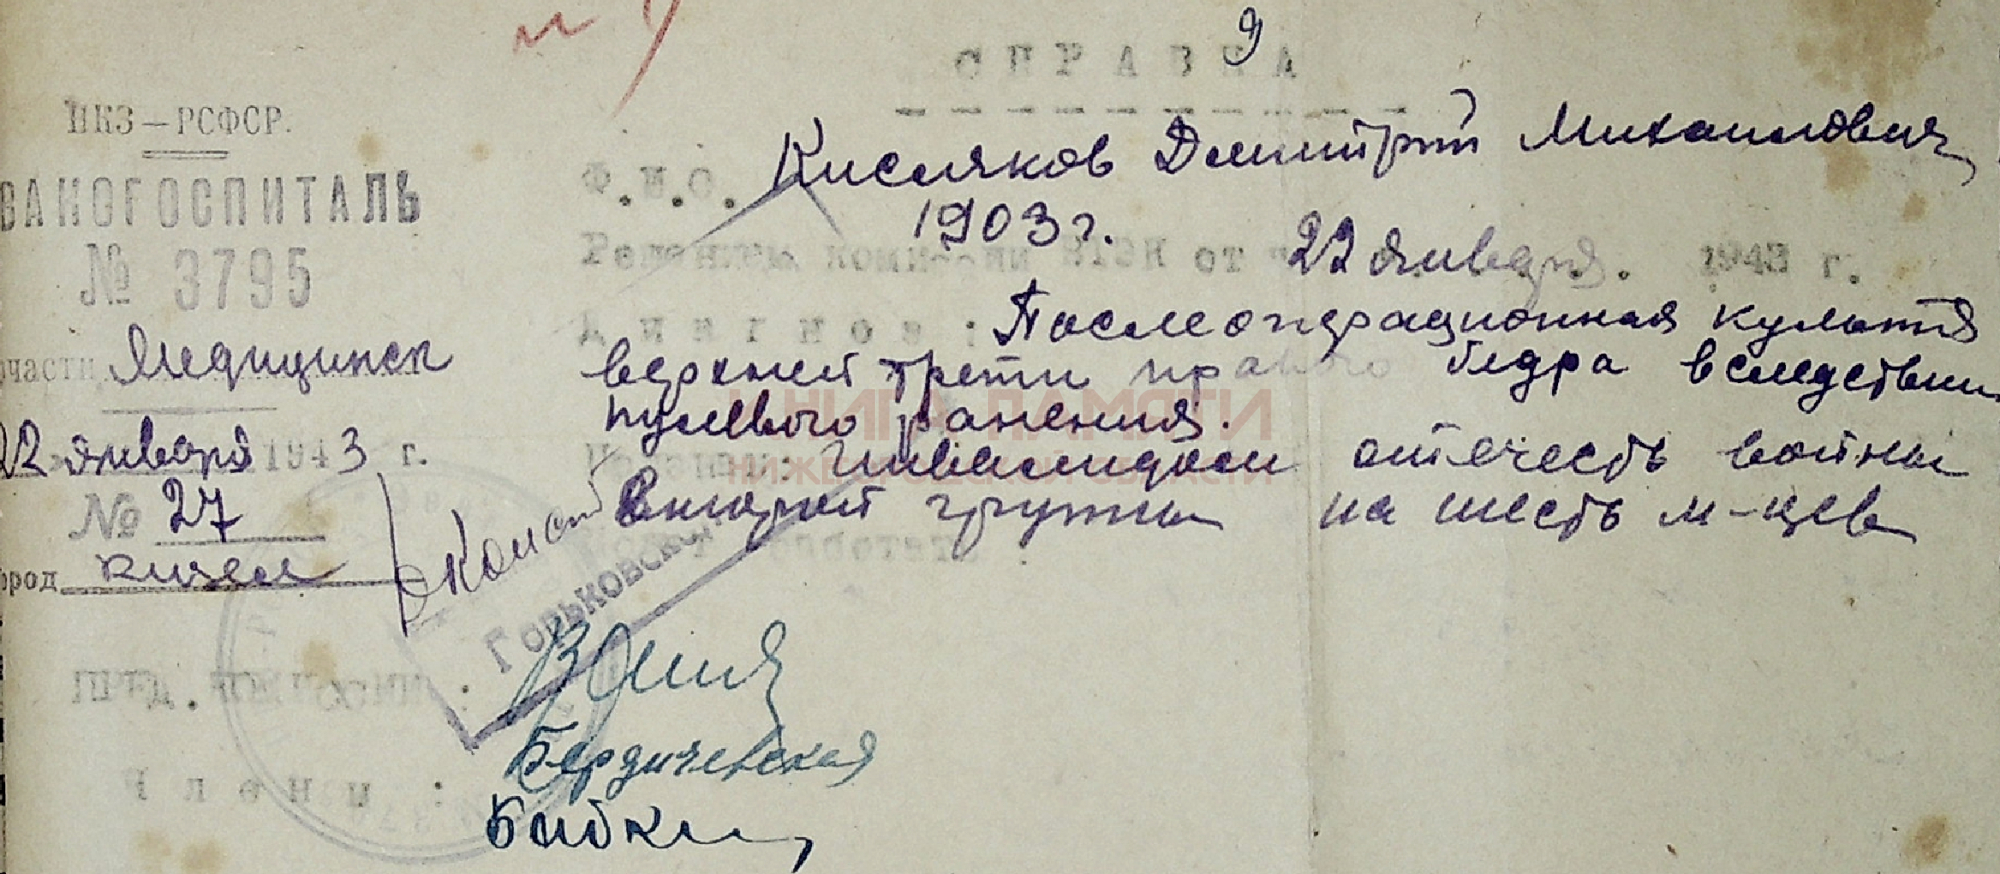 9
СПРАВКА
НКЗ — РСФСР.
ВАКОГОСПИТАЛЬ
№ 3795
части Медицинск
22 января 1943 г.
№ 27
ород
Ф.И.О. Кисляков Дмитрий Михайлович
1903 г.
Решением комиссии ВТЭК от 22 января. 1943 г.
Диагноз: Послеоперационная культя
верхней трети правого бедра вследствии
пулевого ранения.
Признан: инвалидом отечесть войны
второй группы на шесть м-цев
работать
Горьковский
ПРЕД. КОМИССИИ:
Члены:
Бердичевская
КНИГА ПАМЯТИ
НИЖЕГОРОДСКОЙ ОБЛАСТИ